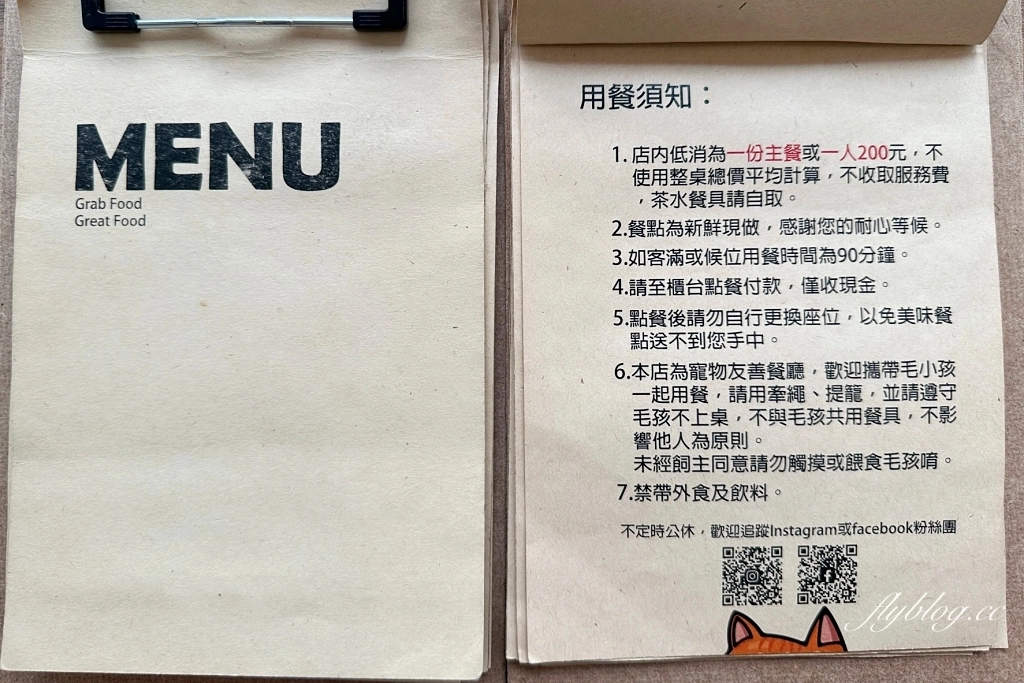 MENU
Grab Food
Great Food
用餐須知：
1. 店內低消為一份主餐或一人200元，不
使用整桌總價平均計算，不收取服務費
，茶水餐具請自取。
2.餐點為新鮮現做，感謝您的耐心等候。
3.如客滿或候位用餐時間為90分鐘。
4.請至櫃台點餐付款，僅收現金。
5.點餐後請勿自行更換座位，以免美味餐
點送不到您手中。
6.本店為寵物友善餐廳，歡迎攜帶毛小孩
一起用餐，請用牽繩、提籠，並請遵守
毛孩不上桌，不與毛孩共用餐具，不影
響他人為原則。
未經飼主同意請勿觸摸或餵食毛孩唷。
7.禁帶外食及飲料。
不定時公休，歡迎追蹤Instagram或facebook粉絲團
flyblog.cc